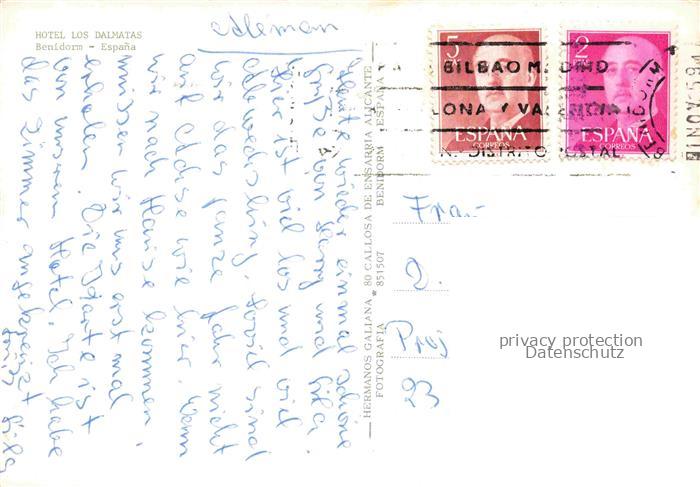 HOTEL LOS DALMATAS
Benidorm - España
Aleman
Heute wieder einmal schöne
Grüße von Georg und Gila.
Hier ist viel los und viel
Abwechslung. Soviel sind
wir das ganze Jahr nicht
auf Achse wie hier. Wenn
wir nach Hause kommen,
müssen wir uns erst mal
erholen. Die Karte ist
von unserem Hotel. Ich habe
das Zimmer angekreuzt
Gila
HERMANOS GALIANA * 80 CALLOSA DE ENSARRIA ALICANTE
FOTOGRAFIA * 851507 BENIDORM - ESPAÑA
5
ESPAÑA
CORREOS
2
ESPAÑA
CORREOS
BILBAO MADRID
LONA Y VALENCIA
N. DISTRITO POSTAL
Frau
D.
Proj
23
privacy protection
Datenschutz